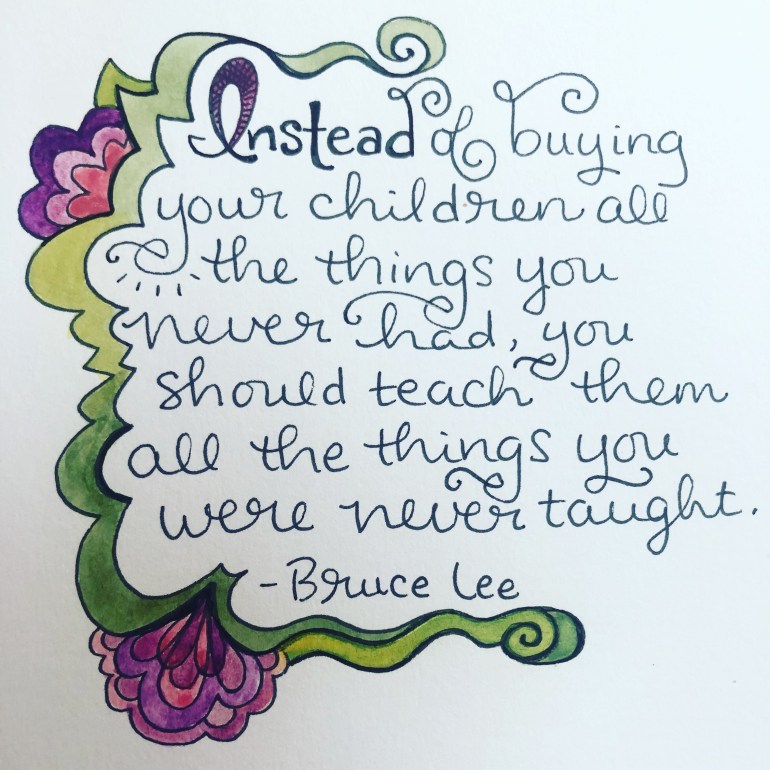 Instead of buying
your children all
the things you
never had, you
should teach them
all the things you
were never taught.
-Bruce Lee